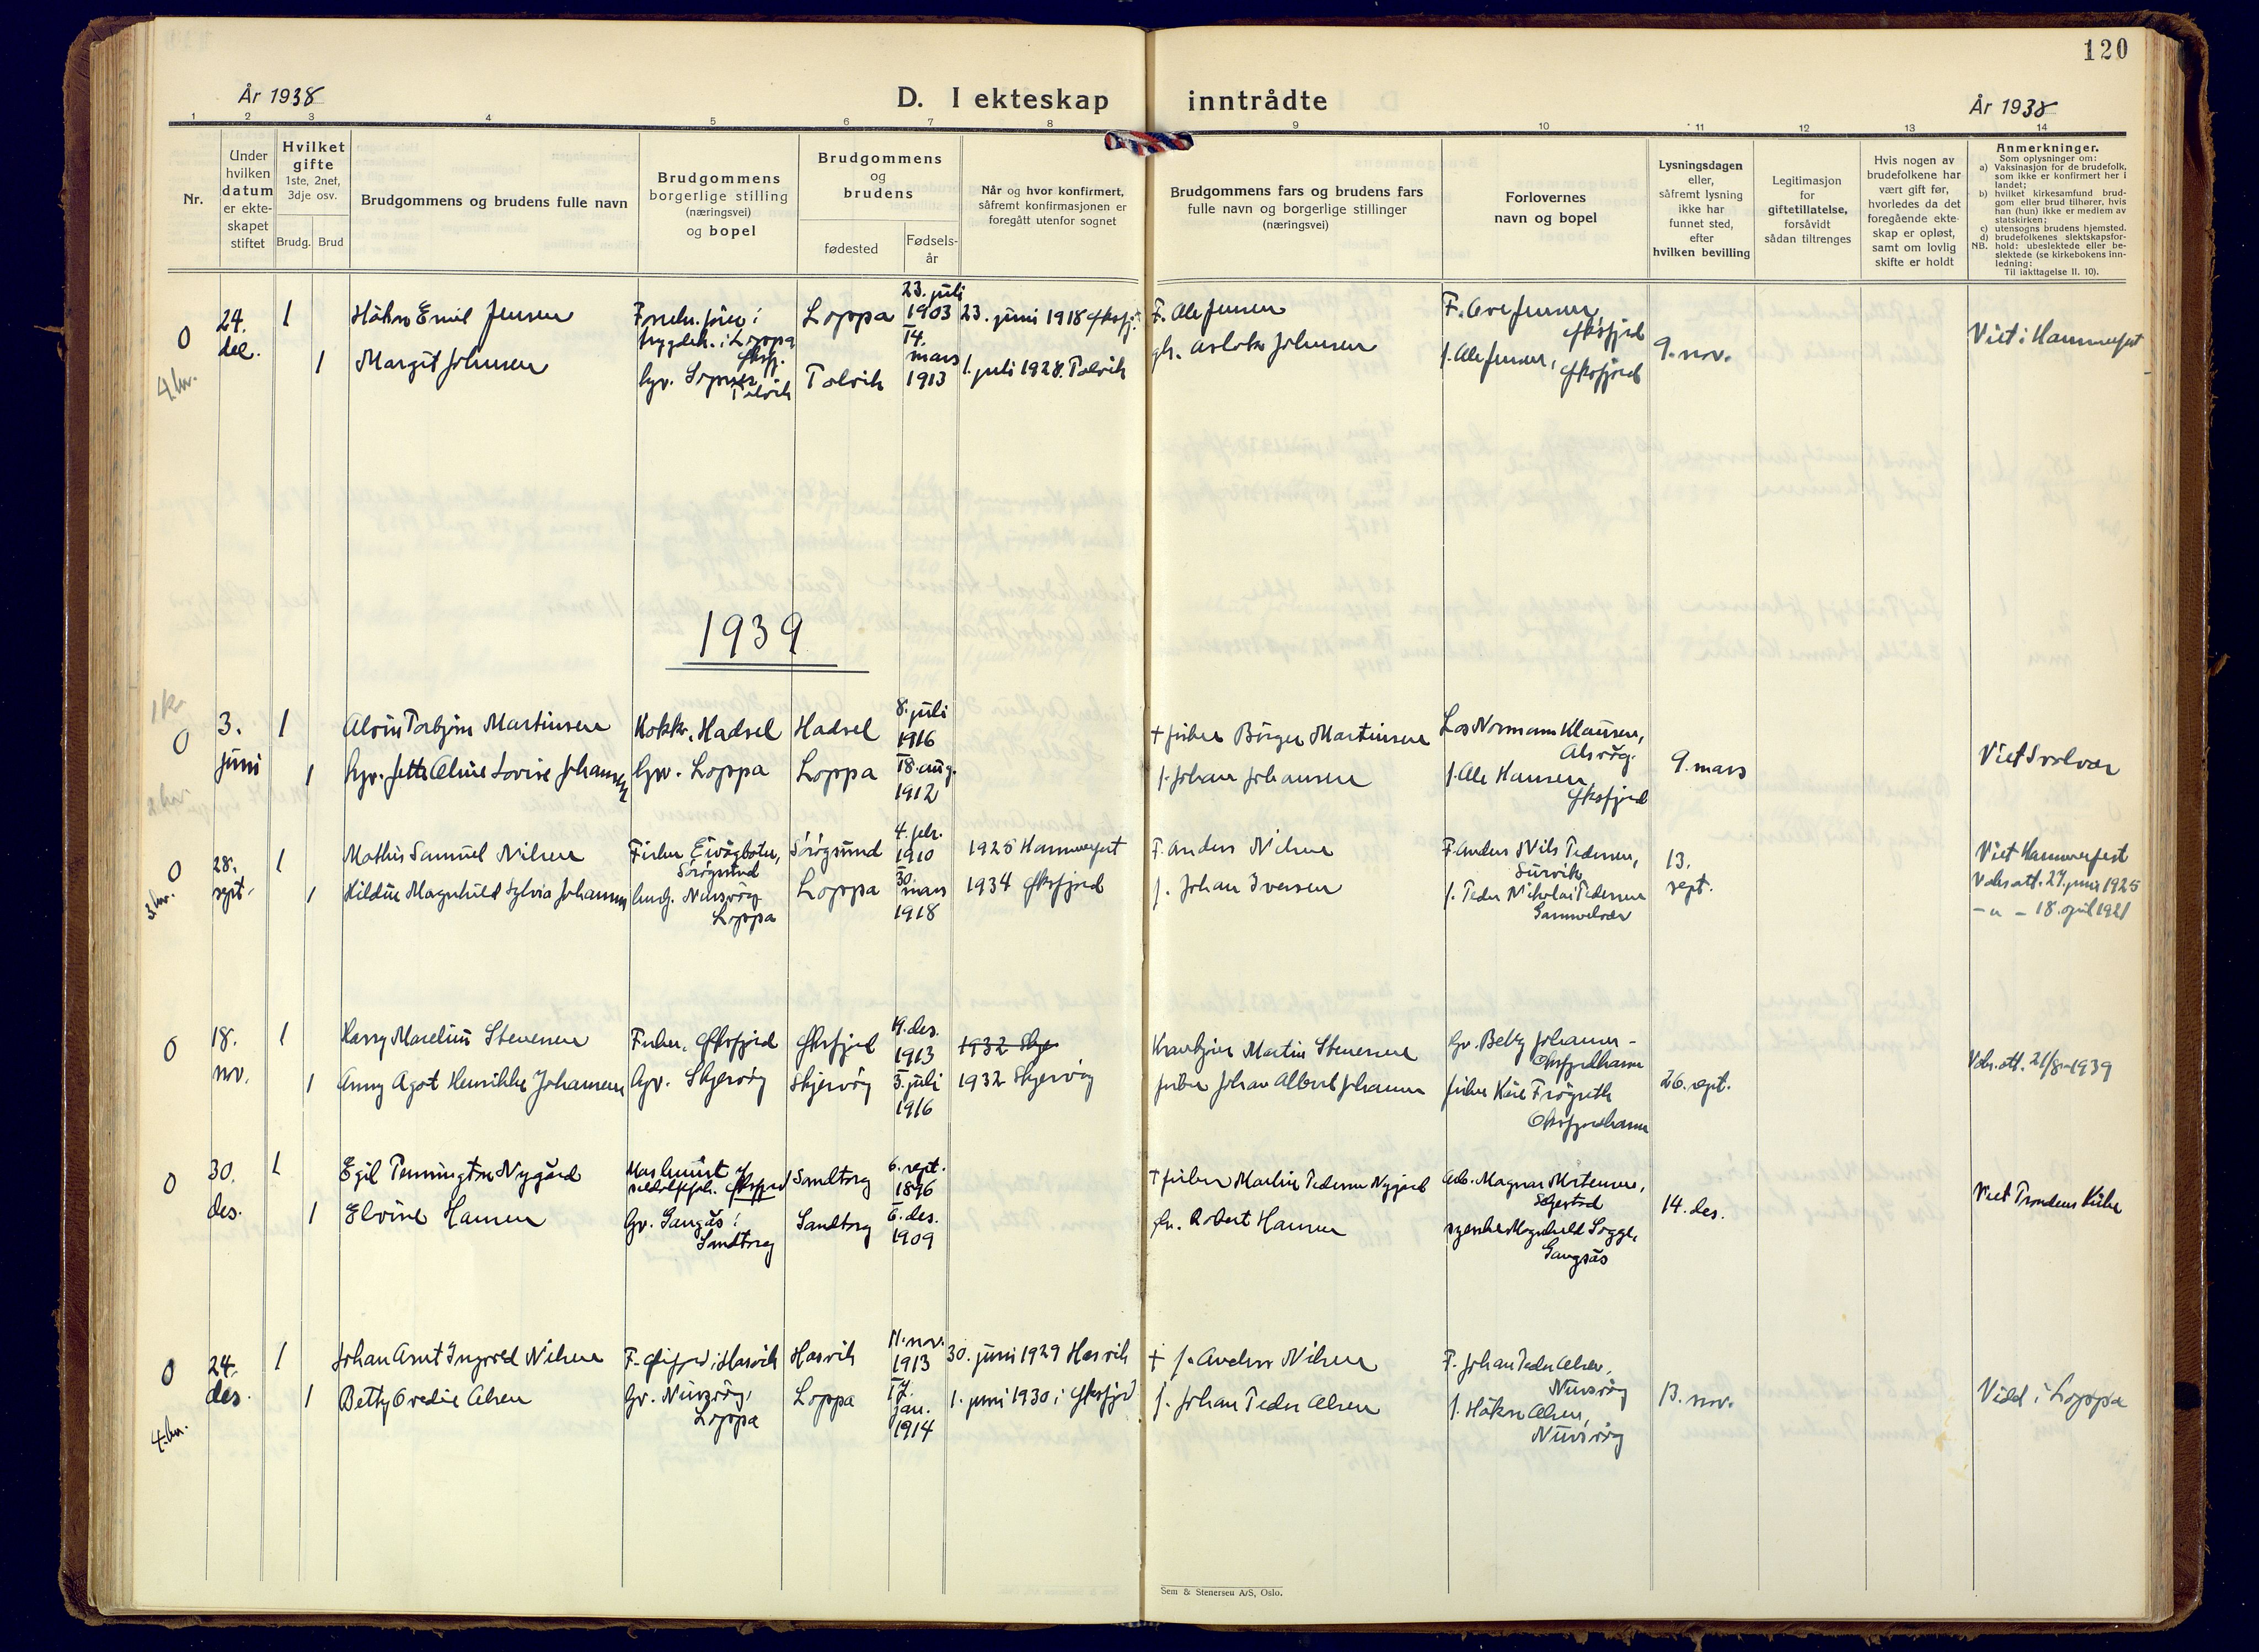 120
År 1938
D. I ekteskap inntrådte
År 1938
1 2 3 4 5 6 7 8 9 10 11 12 13 14
Nr.
Under
hvilken
datum
er ekte-
skapet
stiftet
Hvilket
gifte
1ste, 2net,
3dje osv.
Brudg. Brud
Brudgommens og brudens fulle navn
Brudgommens
borgerlige stilling
(næringsvei)
og bopel
Brudgommens
og
brudens
fødested
Fødsels-
år
Når og hvor konfirmert,
såfremt konfirmasjonen er
foregått utenfor sognet
Brudgommens fars og brudens fars
fulle navn og borgerlige stillinger
(næringsvei)
Forlovernes
navn og bopel
Lysningsdagen
eller,
såfremt lysning
ikke har
funnet sted,
efter
hvilken bevilling
Legitimasjon
for
giftetillatelse,
forsåvidt
sådan tiltrenges
Hvis nogen av
brudefolkene har
vært gift før,
hvorledes da det
foregående ekte-
skap er opløst,
samt om lovlig
skifte er holdt
Anmerkninger.
Som oplysninger om:
a) Vaksinasjon for de brudefolk,
som ikke er konfirmert her i
landet;
b) hvilket kirkesamfund brud-
gom eller brud tilhører, hvis
han (hun) ikke er medlem av
statskirken;
c) utensogns brudens hjemsted.
d) brudefolkenes slektskapsfor-
NB. hold: ubeslektede eller be-
slektede (se kirkebokens inn-
ledning:
Til iakttagelse II. 10).
0 24. 1 Håkon Emil Jensen Loppa 23. juli 1903 23. juni 1918 F. Ole Jensen
des. 1 Margit Johnsen Talvik 14. mars 1913 1. juli 1928. Talvik Aslak Johnsen f. Ole Jensen, 9. nov. Viet i Hammerfest
4 kr.
1939
1 kr
0 3. 1 Torbjørn Martinsen Kokk, Hadsel Hadsel 8. juli 1916 + fisker Börger Martinsen Los Normann Klausen,
juni 1 Jette Aline Lovise Johansen Gv. Loppa Loppa 18. aug. 1912 f. Johan Johansen f. Ole Hansen 9. mars Viet Svolvær
2 kr.
0 28. 1 Mathis Samuel Nilsen Fisker Sörögsund 4. febr. 1910 1925 Hammerfest F. Anders Nilsen F. Anders Nils Pedersen, 13. Viet Hammerfest
sept. 1 Hildur Magnhild Sylvia Johansen Nuvsvåg Loppa Loppa 30. mars 1918 1934 f. Johan Iversen f. Peder Nikolai Pedersen sept. Vaks.att. 27. juni 1925
– " – 18. april 1921
0 18. 1 Harry Marelius Stenersen Fisker, 19. des. 1913 1932 Martin Stenersen Gv. Betzy Johansen
nov. 1 Anny Agot Henrikke Johansen Gv. Skjervöy Skjervöy 5. juli 1916 1932 Skjervöy fisker Johan Albert Johansen fisker Kåre 26. sept. Vaks.att. 21/8–1939
0 30. 1 Egil Pennington Nygård Sandtorg 6. sept. 1896 + fisker Martin Pedersen Nygård Arb. Magnar Mortensen,
des. 1 Elvine Hansen Gv. Gangsås i Sandtorg Sandtorg 6. des. 1909 Robert Hansen Magnhild Gangsås 14. des. Viet Trondenes Kirke
0 24. 1 Johan Arnt Ingvald Nilsen F. i Hasvik Hasvik 11. nov. 1913 30. juni 1929 Hasvik + f. Nilsen F. Johan Peder Olsen, Nuvsvåg
des. 1 Betty Ovedie Olsen Gv. Nuvsvåg, Loppa Loppa 17. jan. 1914 1. juni 1930 i f. Johan Peder Olsen f. Håkon Olsen, Nuvsvåg 13. nov. Vidd i Loppa
4 kr.
Sem & Stenersen A/S, Oslo.